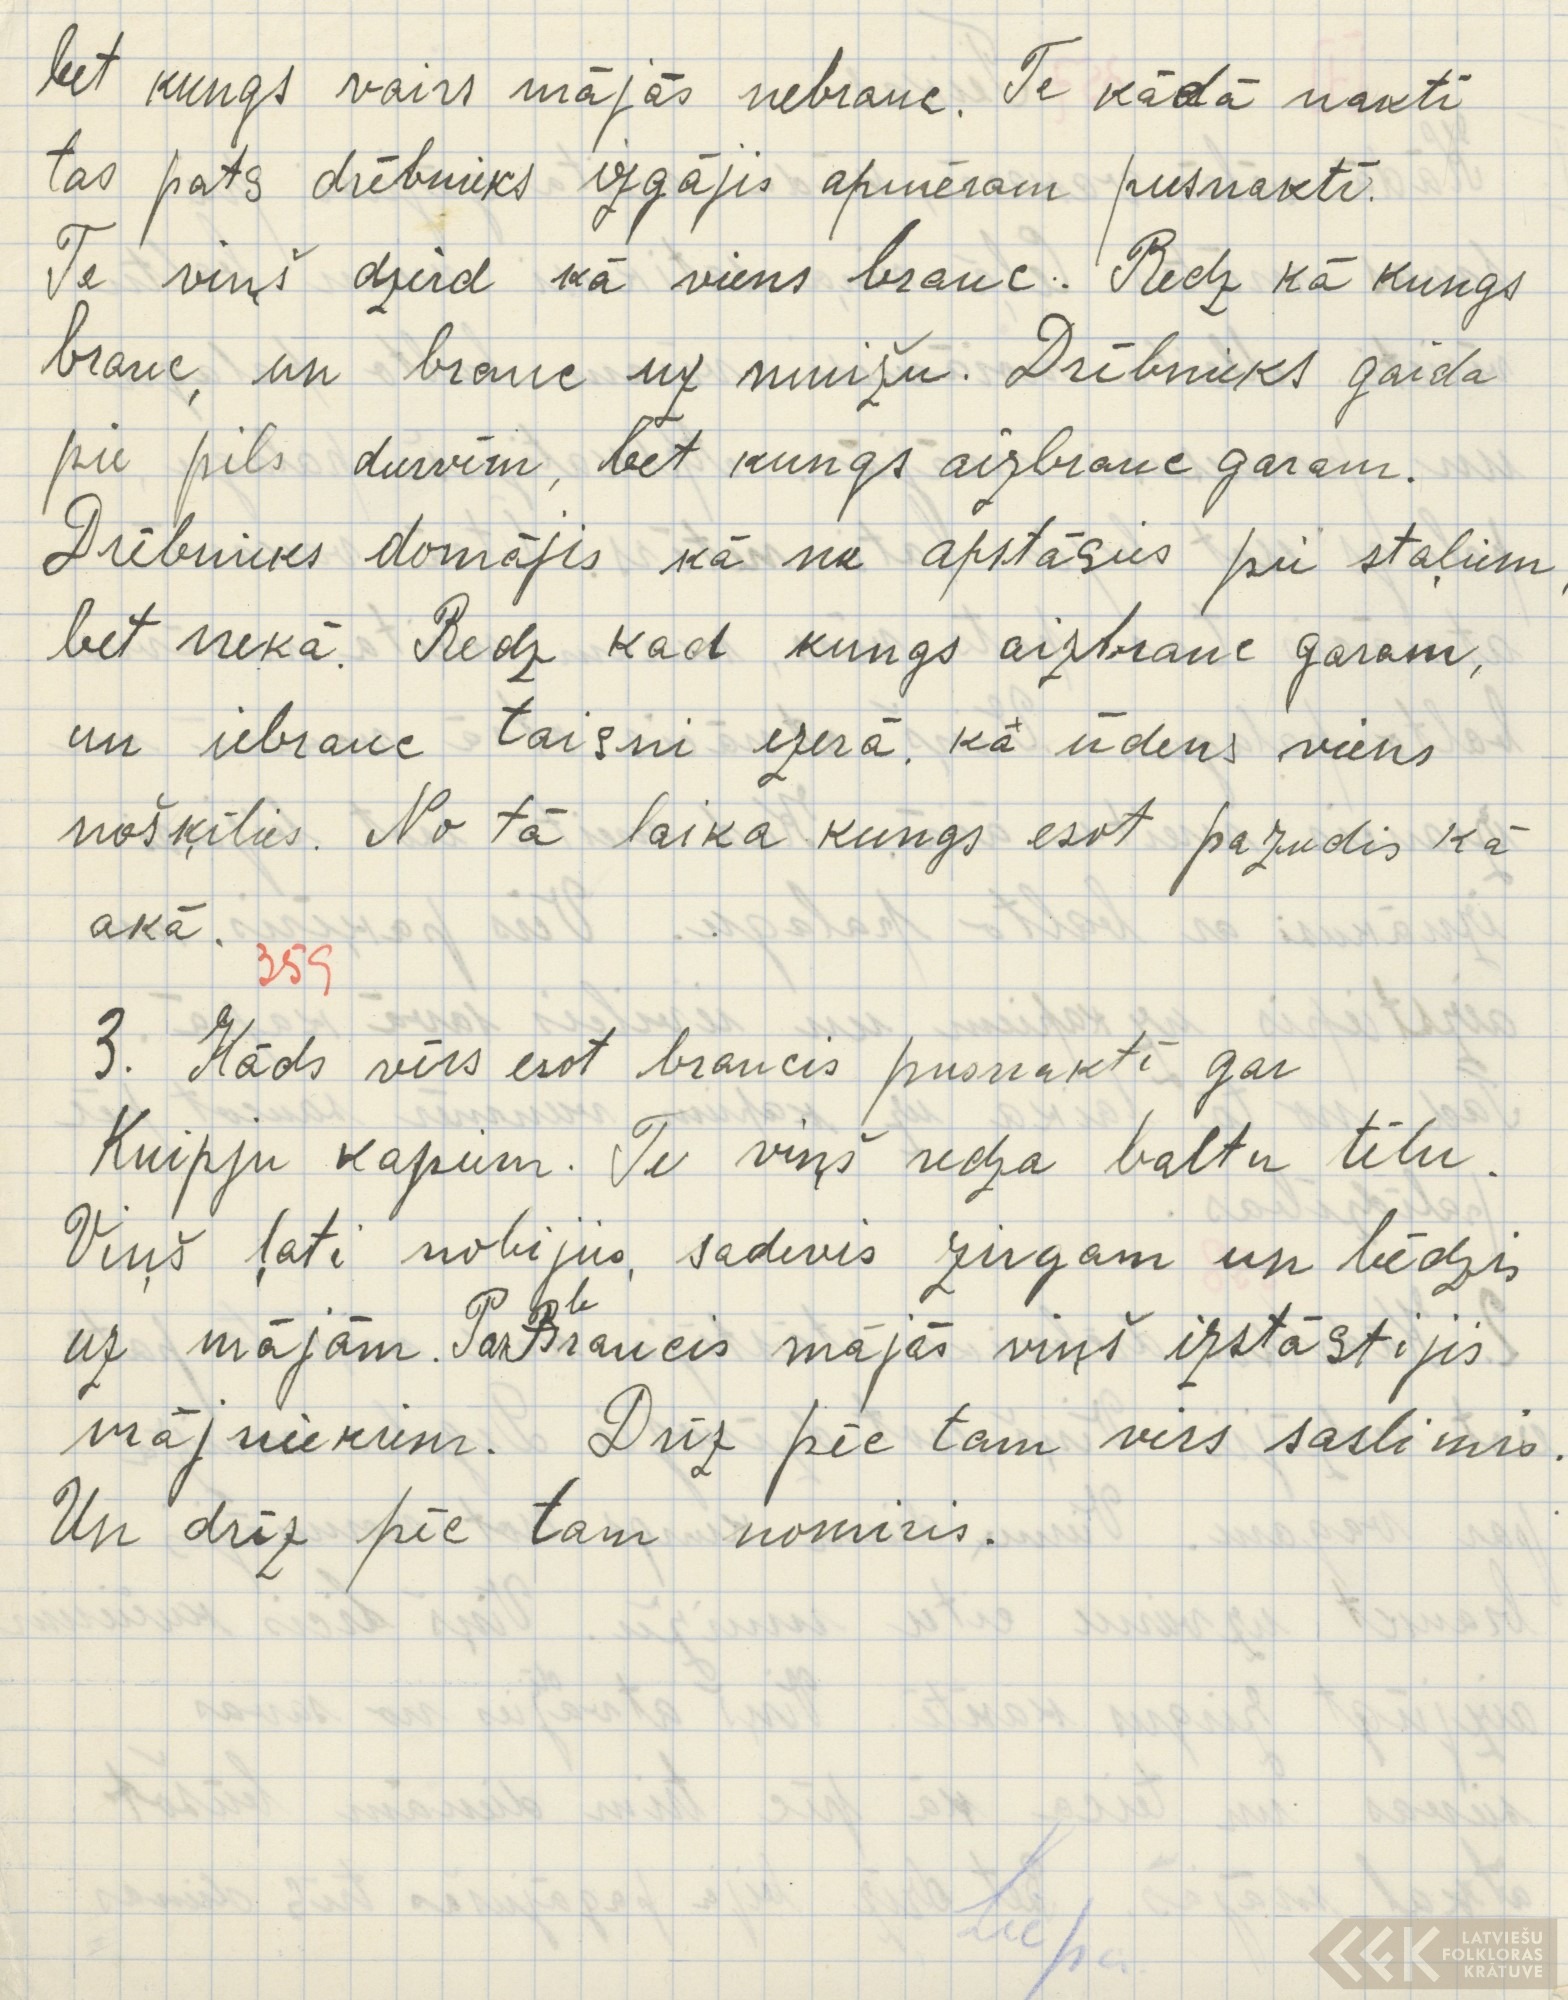 bet kungs vairs mājās nebrauc. Te kādā naktī
tas pats drēbnieks izgājis apmēram pusnaktī.
Te viņš dzird kā viens brauc. Redz kā kungs
brauc, un brauc uz muižu. Drēbnieks gaida
pie pils durvīm, bet kungs aizbrauc garam.
Drēbnieks domājis kā nu apstāsies pie staļļiem,
bet nekā. Redz kad kungs aizbrauc garam,
un iebrauc taisni ezerā, kā ūdens viens
nošķīlies. No tā laika kungs esot pazudis kā
akā.
359
3. Kāds vīrs esot braucis pusnaktī gar
Kuipju kapiem. Te viņš redza baltu tēlu.
Viņš ļati nobijies, sadevis zirgam un bēdzis
uz mājām. Parbraucis mājās viņš izstāstijis
mājniekiem. Drīz pēc tam vīrs saslimis.
Un drīz pēc tam nomiris.
Liepa
LATVIEŠU
FOLKLORAS
KRĀTUVE